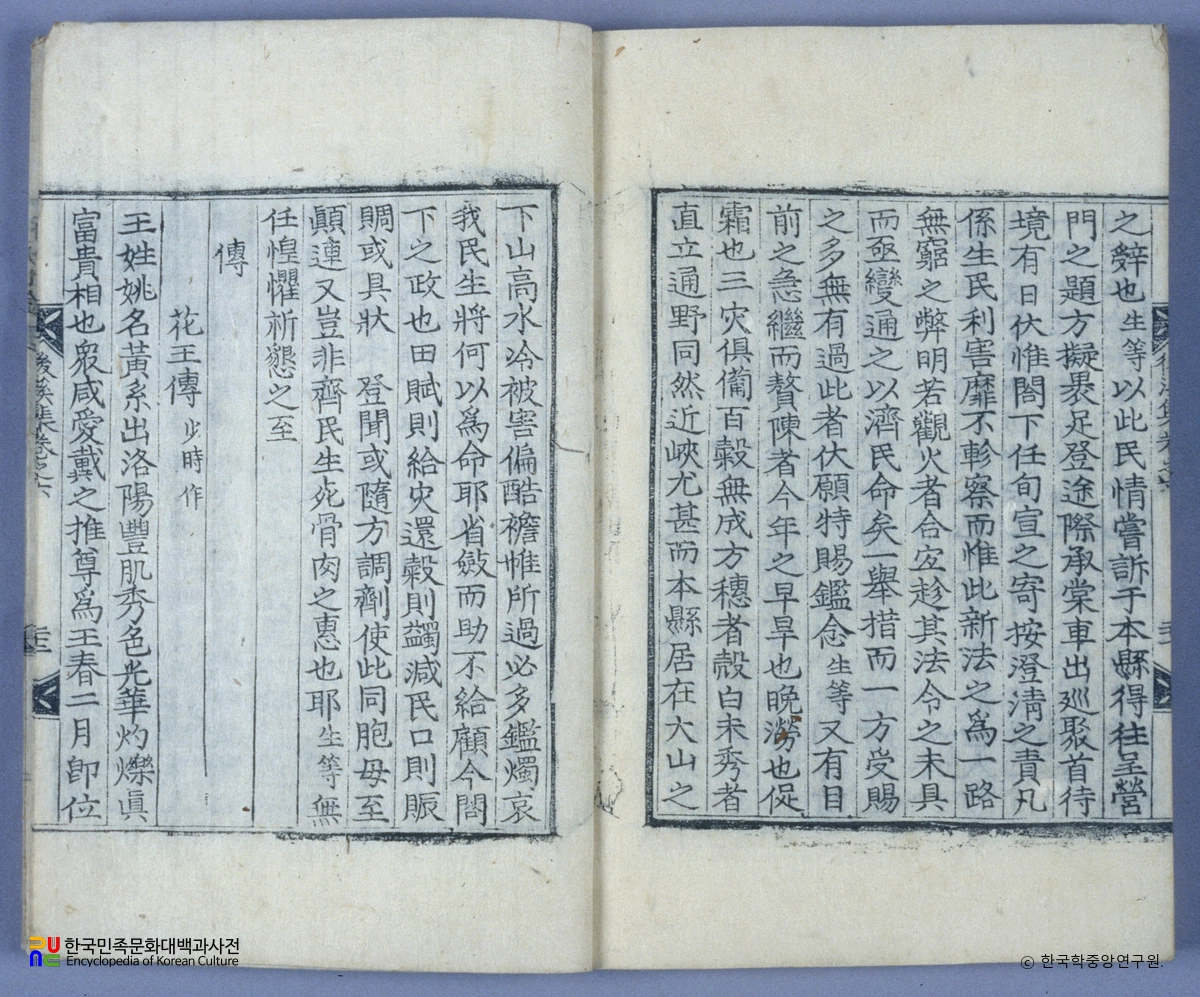 之辭也生等以此民情嘗訴于本縣得往呈營
門之題方擬裹足登途際承棠車出巡聚首待
境有日伏惟閤下任旬宣之寄按澄淸之責凡
係生民利害靡不軫察而惟此新法之爲一路
無窮之弊明若觀火者合宜趁其法令之未具
而亟變通之以濟民命矣一舉措而一方受賜
之多無有過此者伏願特賜鑑念生等又有目
前之急繼而贅陳者今年之早旱也晚澇也促
霜也三灾俱備百穀無成方穗者殼白未秀者
直立通野同然近峽尤甚而本縣居在大山之
下山高水冷被害偏酷襜帷所過必多鑑燭哀
我民生將何以爲命耶省斂而助不給顧今閤
下之政也田賦則給灾還穀則蠲減民口則賑
賙或具狀 登聞或隨方調劑使此同胞毋至
顚連又豈非齊民生死骨肉之惠也耶生等無
任惶懼祈懇之至
傳
花王傳 少時作
王姓姚名黃系出洛陽豐肌秀色光華灼爍眞
富貴相也衆咸愛戴之推尊爲王春二月卽位
後溪集卷之六
한국민족문화대백과사전
Encyclopedia of Korean Culture
ⓒ 한국학중앙연구원.